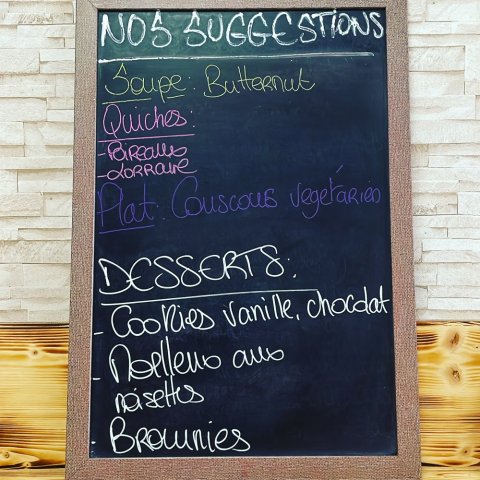 NOS SUGGESTIONS
Soupe: Butternut
Quiches:
-Poireaux
-Lorraine
Plat: Couscous vegetarien
DESSERTS:
- Cookies vanille, chocolat
- Moelleux aux
noisettes
- Brownies